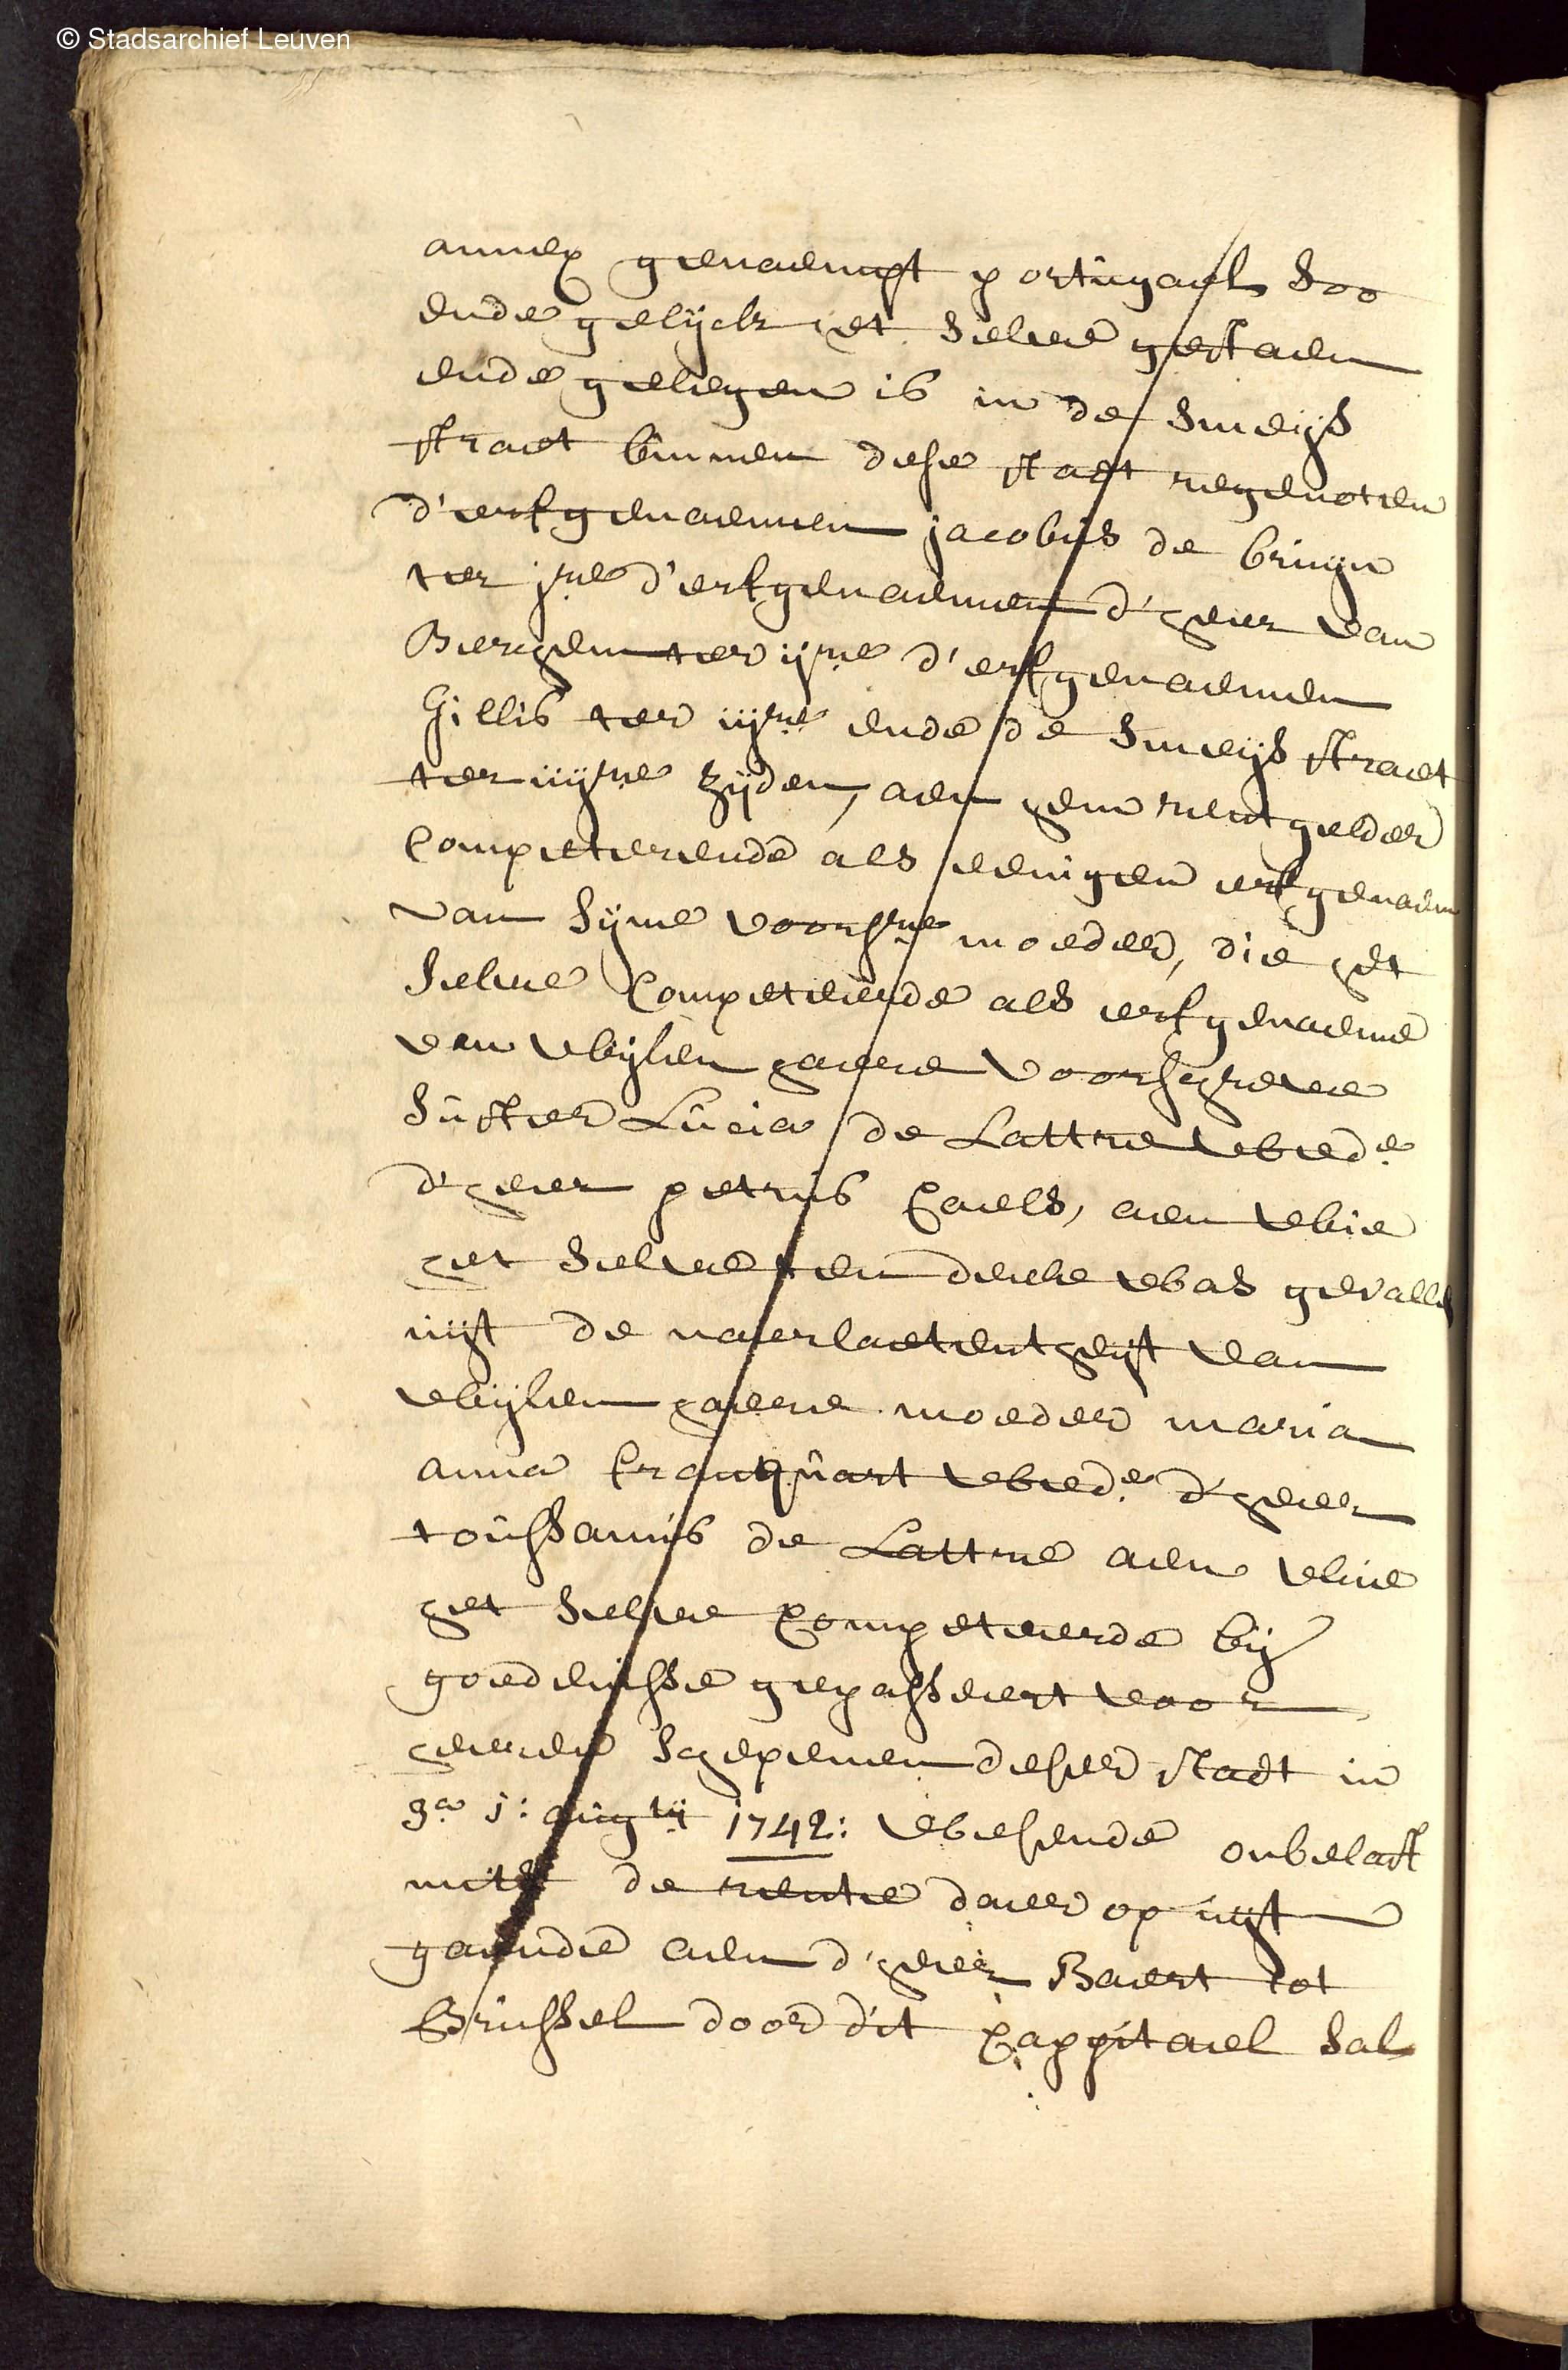 © Stadsarchief Leuven
annex genaempt portugael soo
ende gelijck het selve gestaen
ende gelegen is in de smeijs
straet binnen dese stadt regenoten
d'erfgenaemen jacobus de bruijn
ter jre d'erfgenaemen d'heer van
Berghem ter ijre d'erfgenaemen
Gillis ter iijre ende de smeijs straet
ter iiijre zijden, aen hem rentgelder
Competerende als eenigen erfgenaem
van sijne voorsre moeder, die het
selve Competeerde als erfgenaeme
van wijlen haere voorschreve
suster Lucia de Lattre wede
d'heer petrus Caels, aen wie
het selve ten deele was gevallen
uijt de naerlaetentheijt van
wijlen haere moeder maria
anna franquart wede d'heer
toussanus de Lattre aen wie
het selve Competeerde bij
goedenisse gepasseert voor
heeren schepenen deser stadt in
3a j: augtij 1742: wesende onbelast
mits de rente daer op uijt
gaende aen d'heer Baert tot
Brussel door dit Cappitael sal